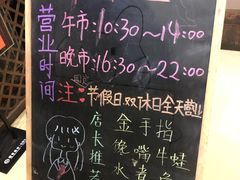 营业时间
午市:10:30～14:00
晚市:16:30～22:00
注:节假日.双休日全天营业
店长推荐
金手指
馋嘴牛蛙
水煮